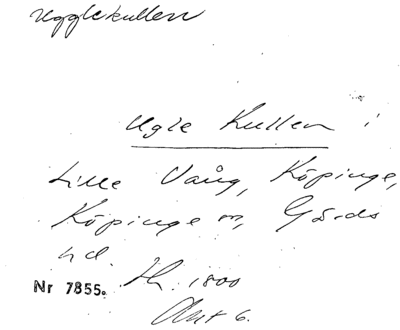 Ugglekullen
Ugle Kullen i
Lille Vång, Köpinge,
Köpinge sn, Gärds
hd. Sk. 1800
Nr 7855.
Akt 6.